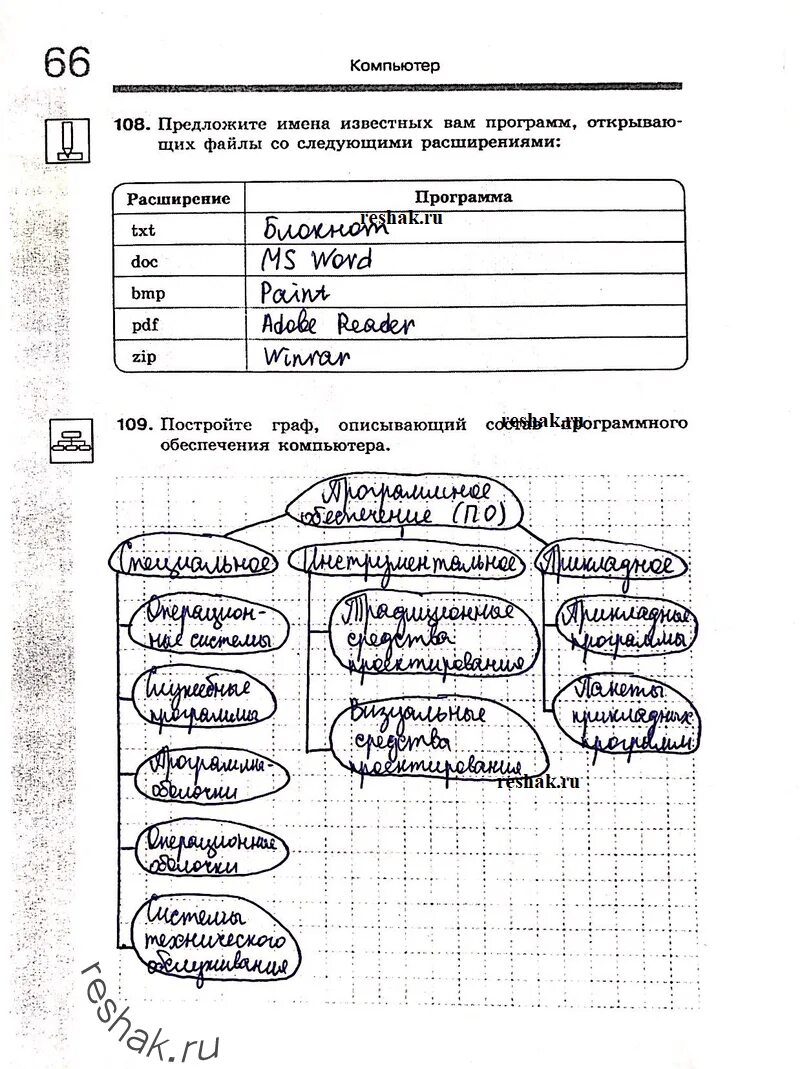 66
Компьютер
108. Предложите имена известных вам программ, открываю-
щих файлы со следующими расширениями:
Расширение Программа
reshak.ru
txt Блокнот
doc MS Word
bmp Paint
pdf Adobe Reader
zip Winrar
109. Постройте граф, описывающий состав программного
reshak.ru
обеспечения компьютера.
Программное
обеспечение (ПО)
Специальное Инструментальное Прикладное
Операцион-
ные системы
Служебные
программы
Программы-
оболочки
Операционные
оболочки
Системы
технического
обслуживания
Традиционные
средства
проектирования
Визуальные
средства
проектирования
Прикладные
программы
Пакеты
прикладных
программ
reshak.ru
reshak.ru